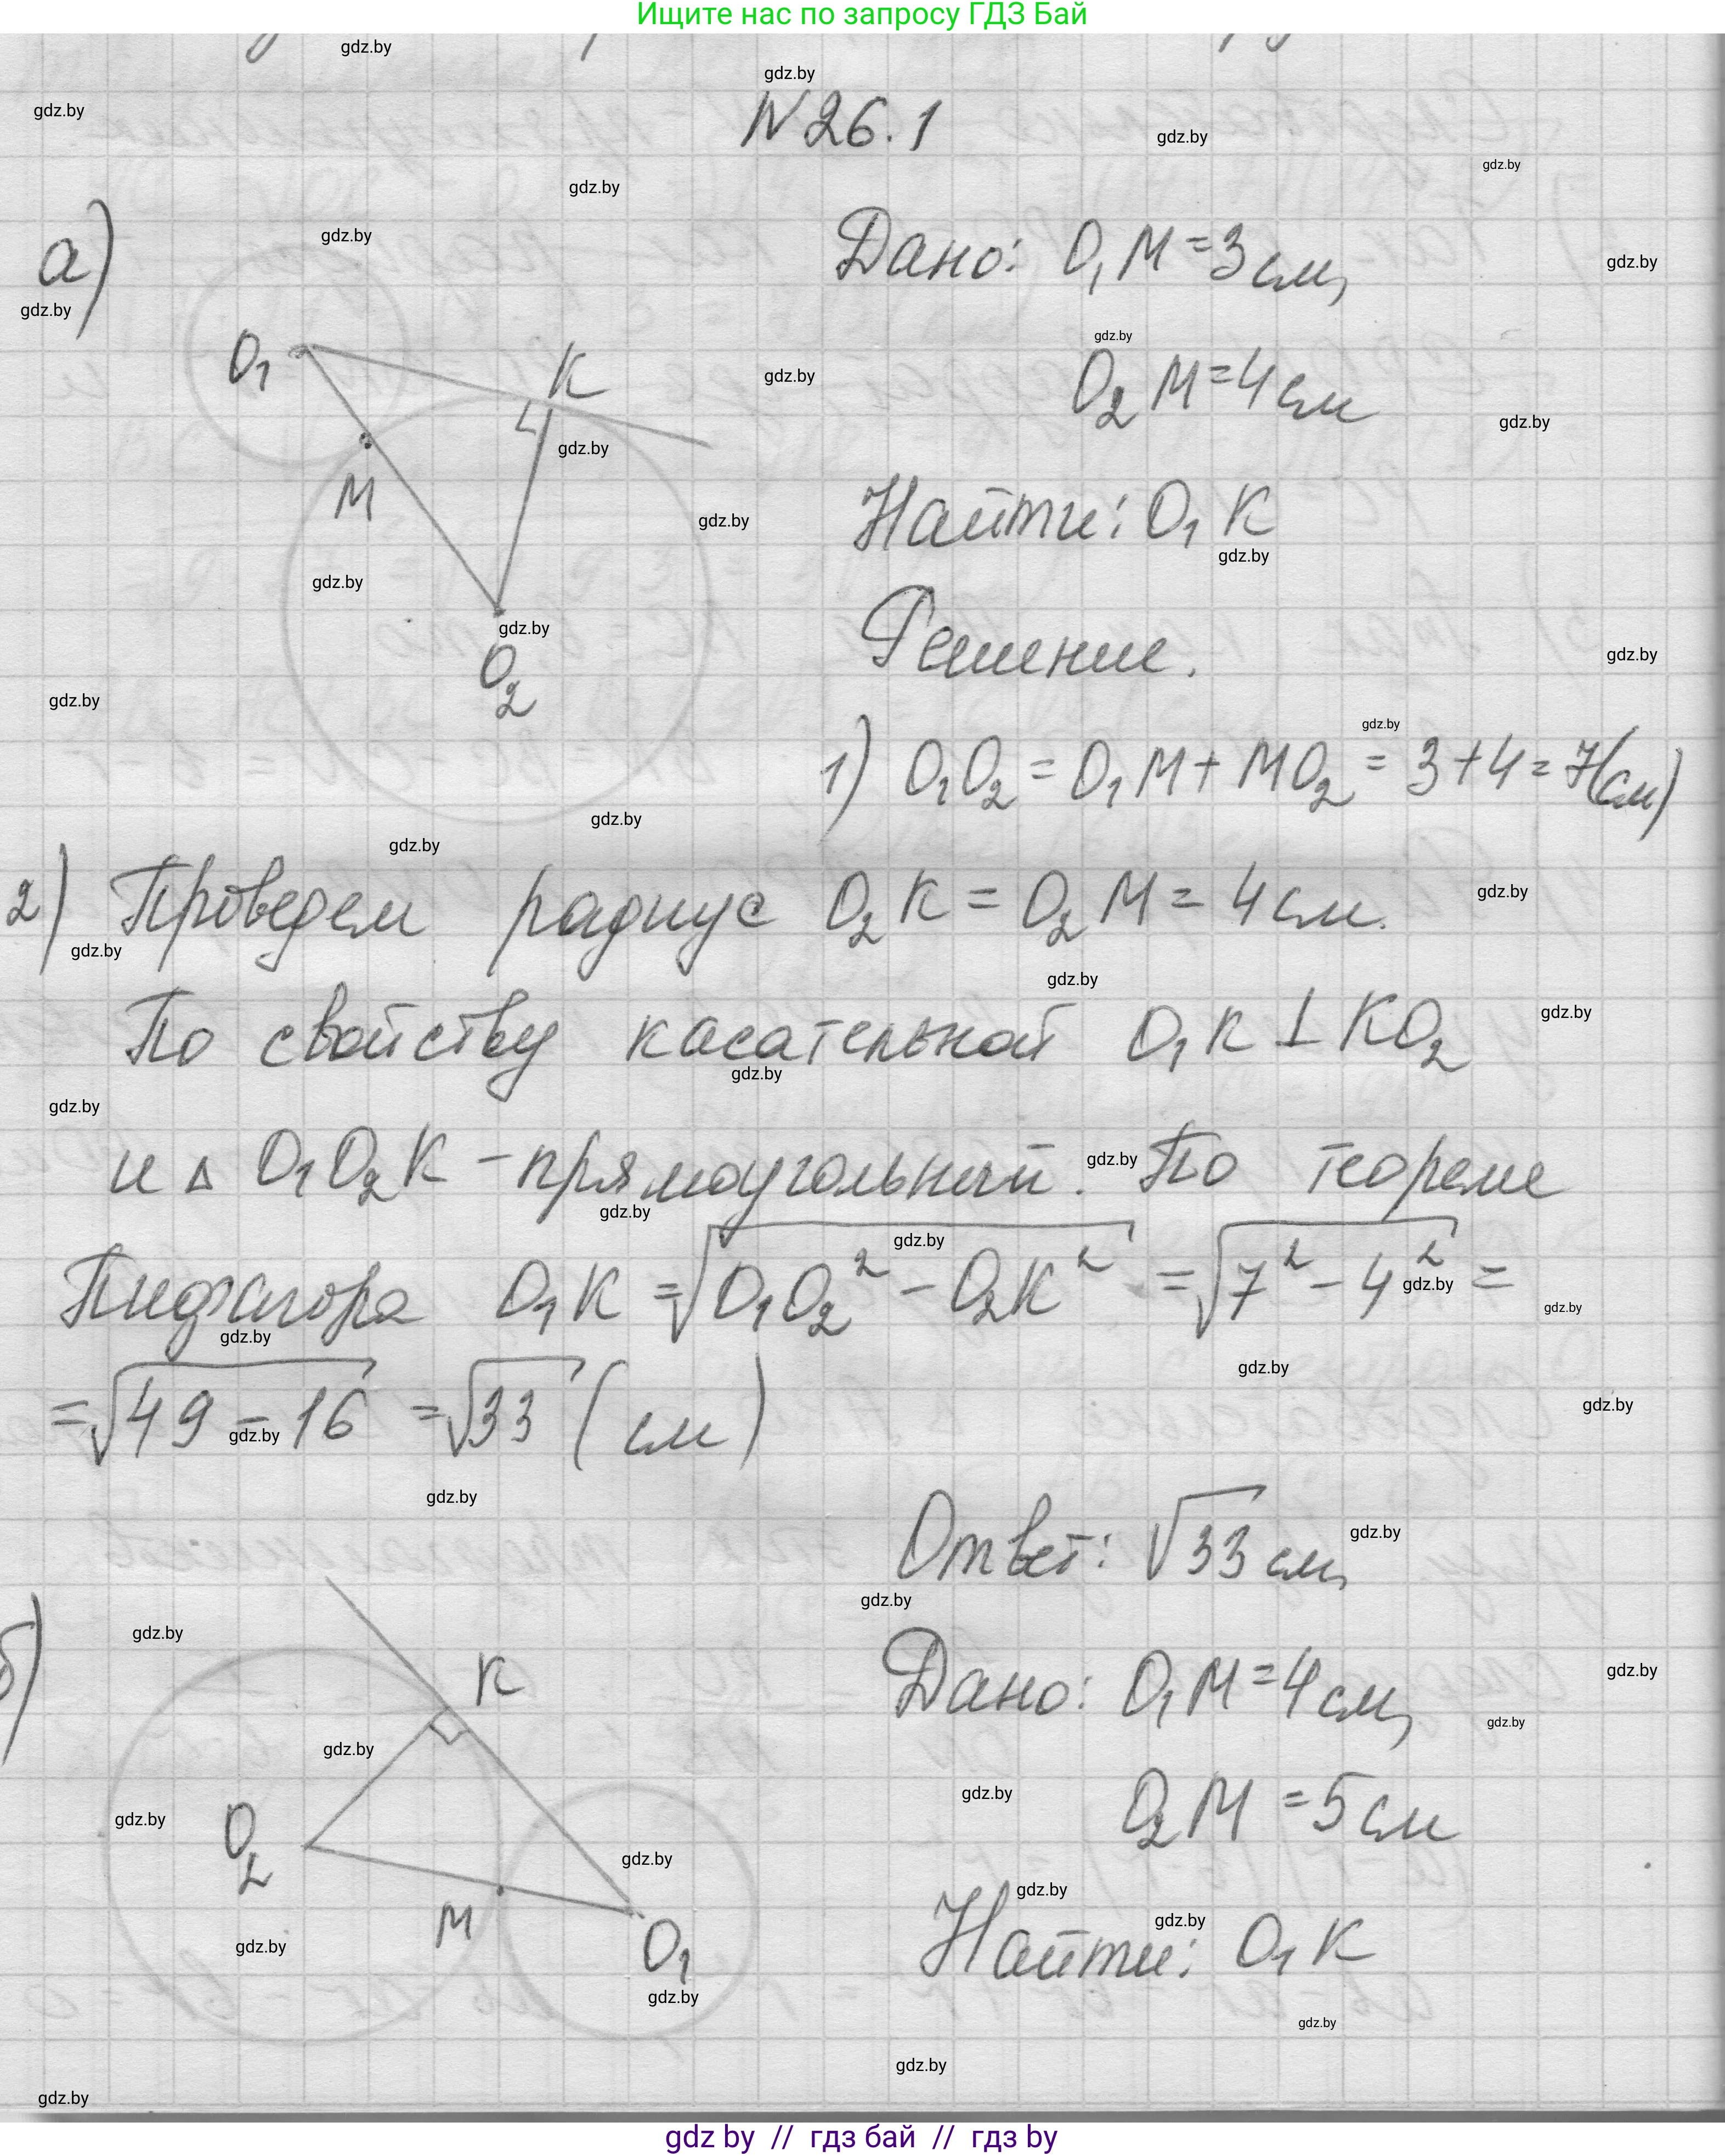 Ищите нас по запросу ГДЗ Бай
N 26.1
а)
Дано: O₁M = 3 см,
O₂M = 4 см
O₁
K
M
O₂
Найти: O₁K
Решение.
1) O₁O₂ = O₁M + MO₂ = 3 + 4 = 7(см)
2) Проведем радиус O₂K = O₂M = 4 см.
По свойству касательной O₁K ⊥ KO₂
и △ O₁O₂K - прямоугольный. По теореме
Пифагора O₁K = √(O₁O₂² - O₂K²) = √(7² - 4²) =
= √(49 - 16) = √33 (см)
Ответ: √33 см,
б)
Дано: O₁M = 4 см,
O₂M = 5 см
K
O₂
M
O₁
Найти: O₁K
gdz.by
gdz by // гдз бай // гдз by